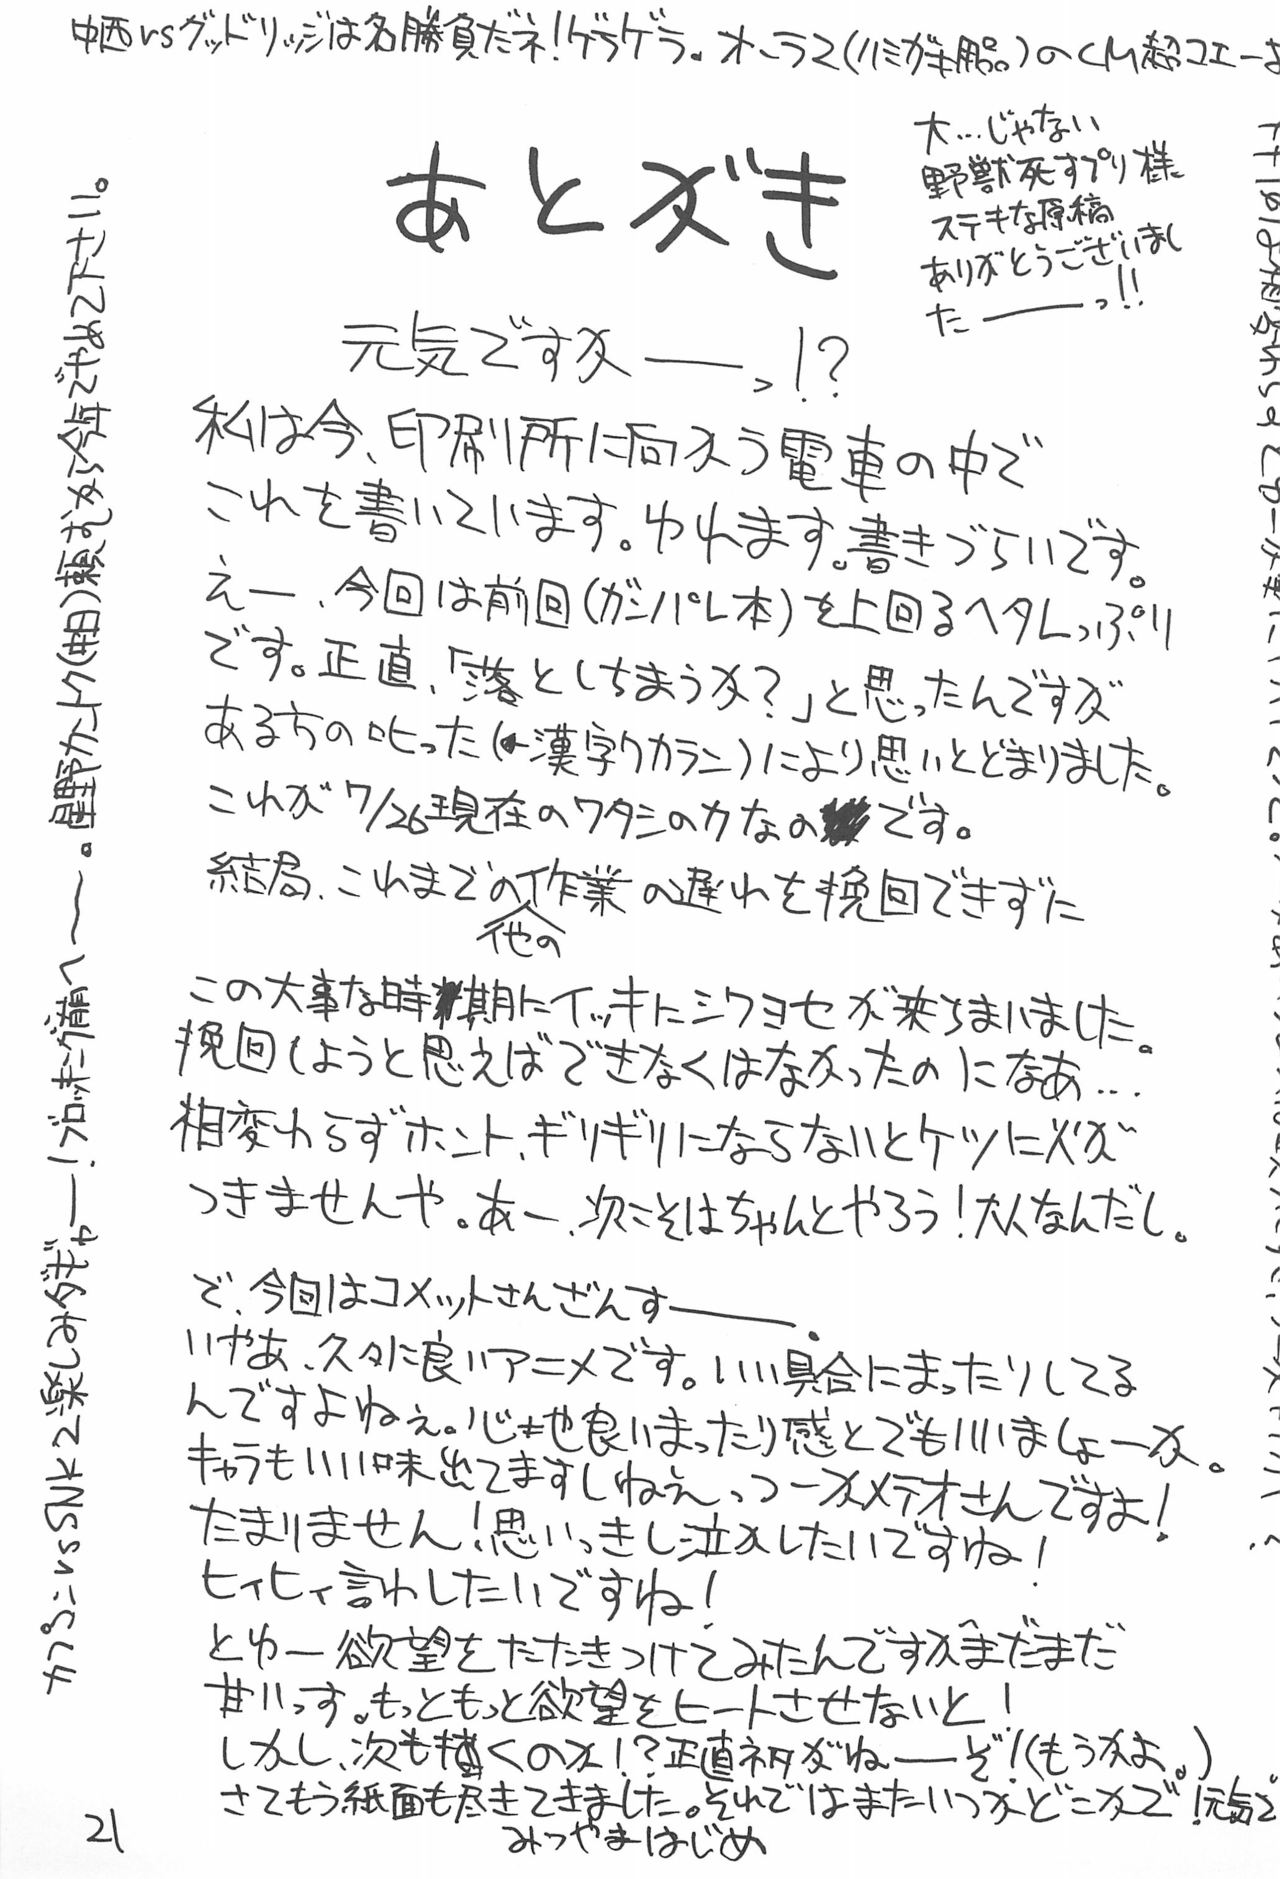 中西vsグッドリッジは名勝負だネ！ゲラゲラ。オーラ2(ハミガキ粉。)のCM超コエーよ
あとがき
大…じゃない
野獣死すプリ様
ステキな原稿
ありがとうございまし
たーーっ!!
元気ですかーーっ!?
私は今、印刷所に向かう電車の中で
これを書いています。ゆれます。書きづらいです。
えー、今回は前回(ガンパレ本)を上回るヘタレっぷり
です。正直、「落としちまうか？」と思ったんですが
ある方の叱った(←漢字ワカラン)により思いとどまりました。
これが7/26現在のワタシの力なの です。
結局、これまでの他の作業の遅れを挽回できずに
この大事な時期にイッキにシワヨセが来ちまいました。
挽回しようと思えばできなくはなかったのになあ…
相変わらずホント、ギリギリにならないとケツに火が
つきませんや。あー、次こそはちゃんとやろう！大人なんだし。
で、今回はコメットさんざんすーー。
いやあ、久々に良いアニメです。いい具合にまったりしてる
んですよねぇ。心地良いまったり感とでもいいましょーか。
キャラもいい味出てますしねえ、つーかメテオさんですよ！
たまりません！思いっきし泣かしたいですね！
ヒィヒィ言わしたいですね！
とゆー欲望をたたきつけてみたんですがまだまだ
甘いっす。もっともっと欲望をヒートさせないと！
しかし、次も描くのか！？正直ネタがねーーぞ！(もうかよ。)
さてもう紙面も尽きてきました。それではまたいつかどこかで！元気で
みつやまはじめ
カプコンvsSNK2楽しみダギャー！ブロッキング萌へ〜〜。星野カントク(旦)頼むから今年でやめて下さい。
21